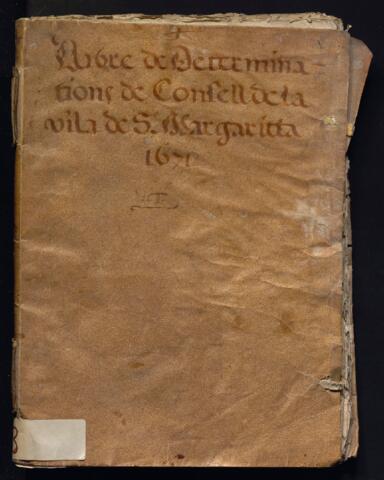 Llibre de Determina-
tions de Consell de la
vila de S. Margaritta
1671